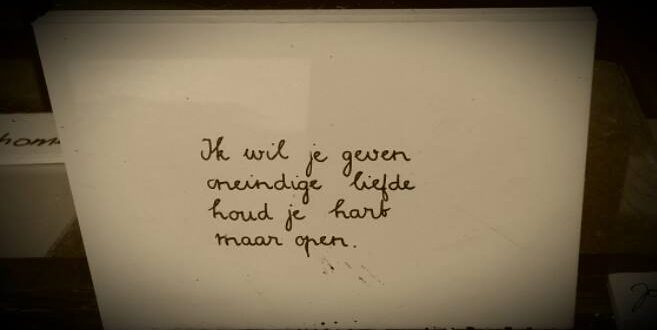 Ik wil je geven
oneindige liefde
houd je hart
maar open.